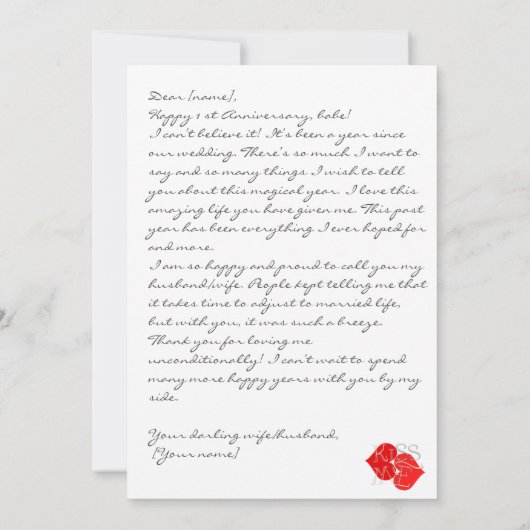 Dear [name],
Happy 1 st Anniversary, babe!
I can't believe it! It's been a year since
our wedding. There's so much I want to
say and so many things I wish to tell
you about this magical year. I love this
amazing life you have given me. This past
year has been everything I ever hoped for
and more.
I am so happy and proud to call you my
husband/wife. People kept telling me that
it takes time to adjust to married life,
but with you, it was such a breeze.
Thank you for loving me
unconditionally! I can't wait to spend
many more happy years with you by my
side.
Your darling wife/husband,
[Your name]
KISS
ME